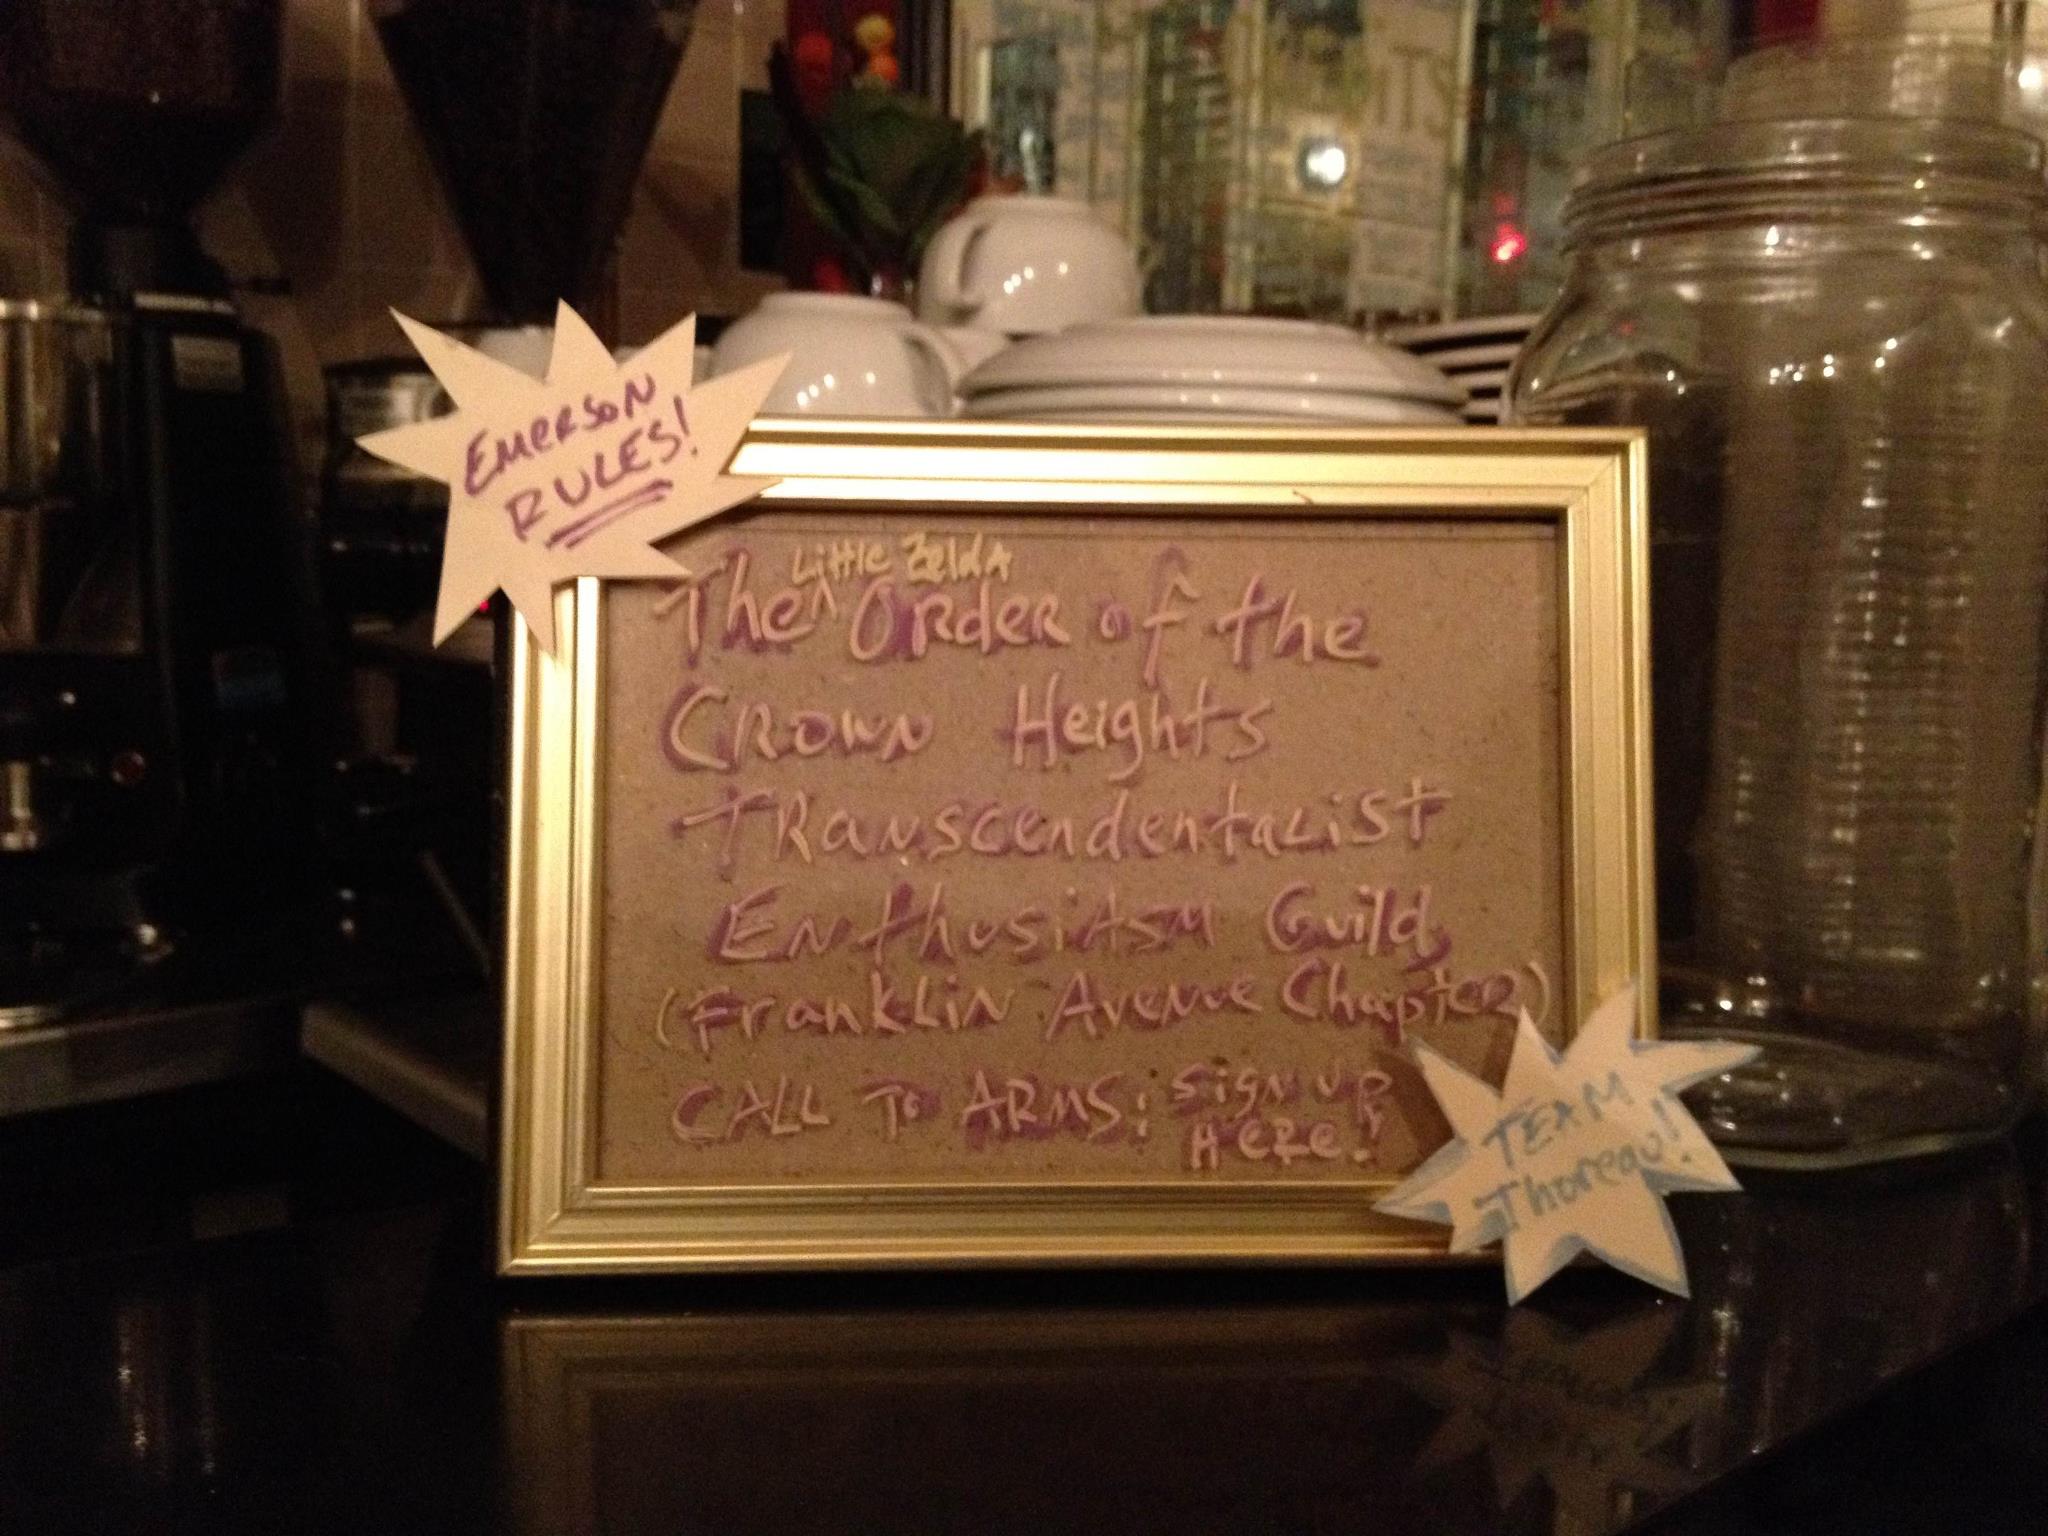 EMERSON
RULES!
Little Zelda
The ^ Order of the
Crown Heights
Transcendentalist
Enthusiasm Guild,
(Franklin Avenue Chapter)
CALL TO ARMS: Sign up
Here!
TEAM
Thoreau!